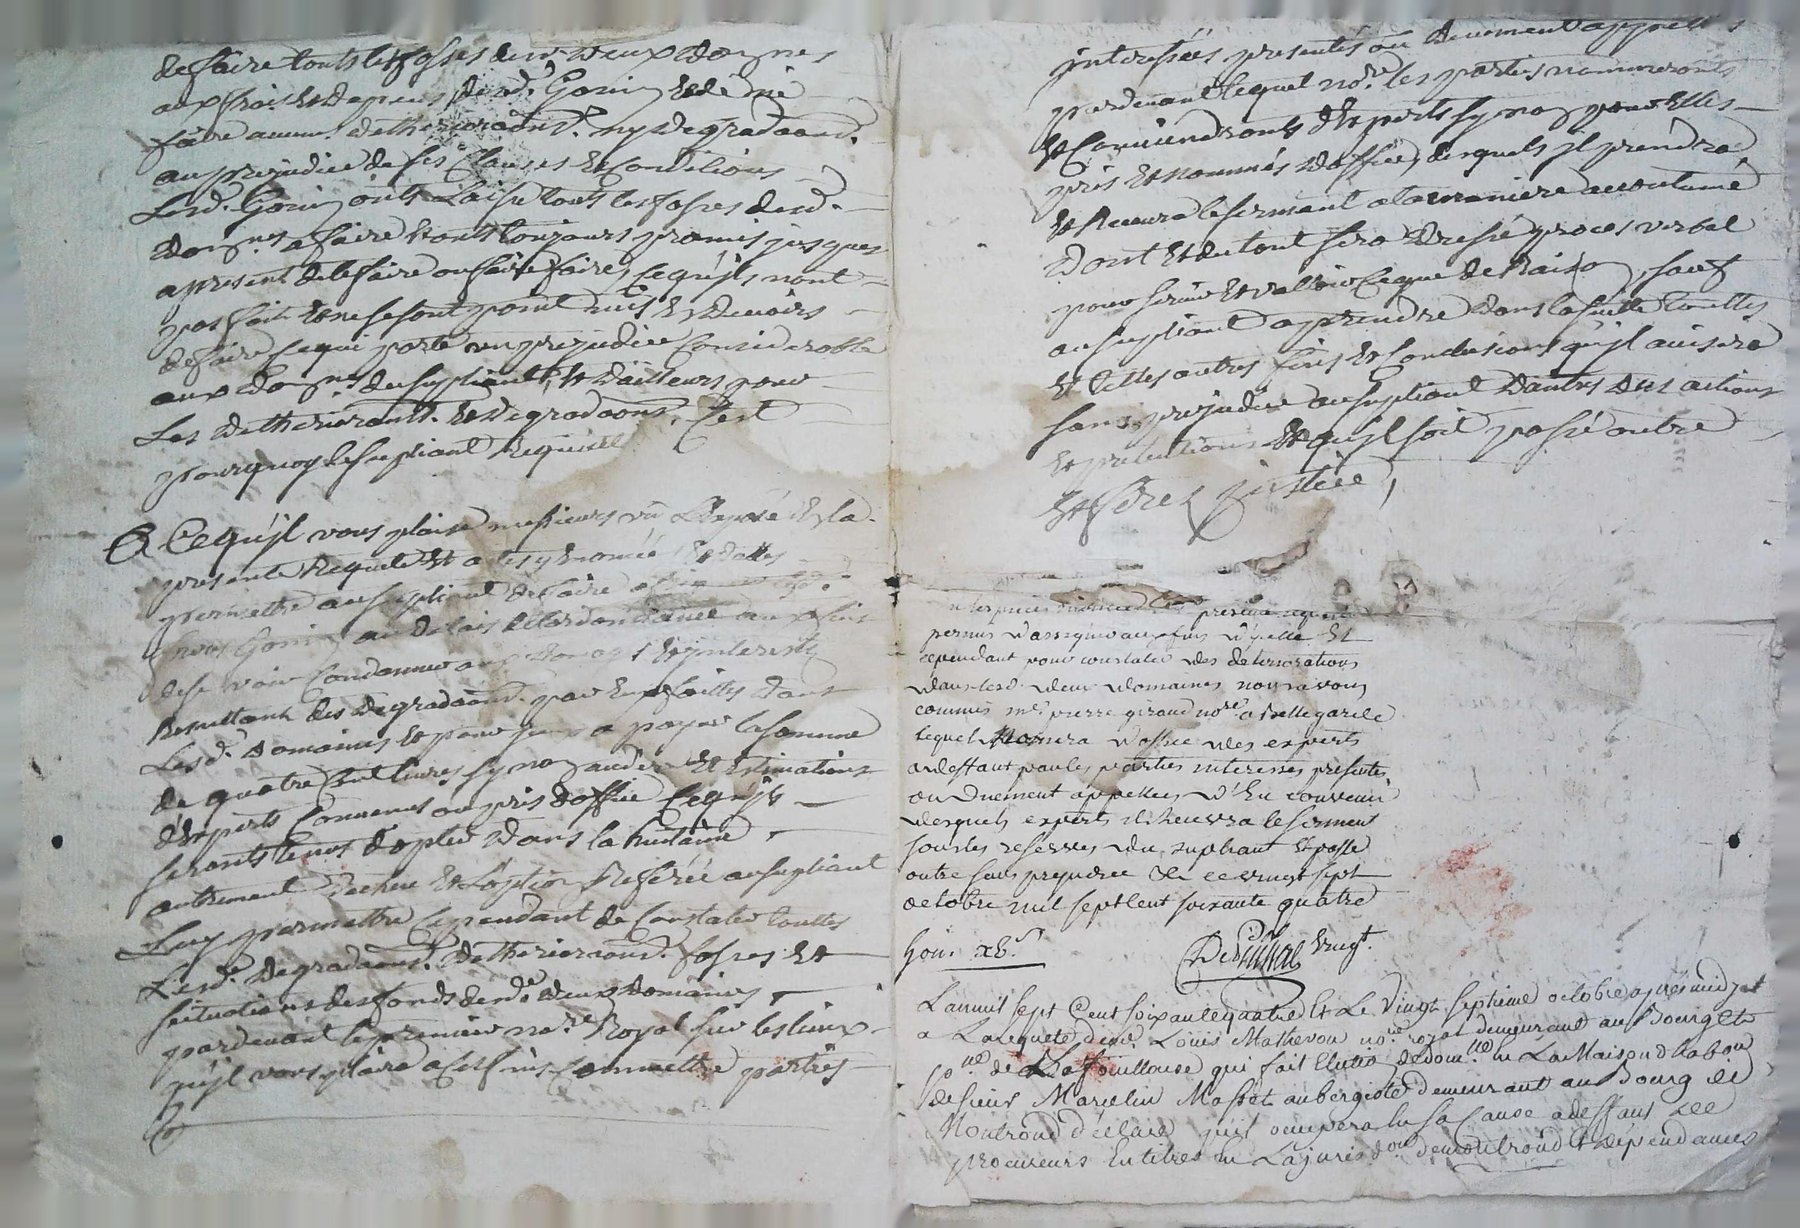 de faire touts les fosses desd. deux domnes
aux frais et depens desd. Gonin et de ne
faire aucune detherioraons. ny degradaons.
au prejudice de ses clauses et conditions
Lesd. Gonin onts laissé touts les fosses desd.
domnes a faire et onts toujours promis jusques
apresent de le faire ou faire faire, ce qu'jls nont
pas fait et ne se sont point mis en devoirs
de faire ce qui porte un prejudice considerable
aux domnes du supliant, et d'ailleurs pour
les detherioraons. et degradaons. C'est
pourquoy le supliant requiert
A ce qu'jl vous plaise messieurs vû l'exposé en la
presente requete et actes y enoncés et dattes
permettre au supliant de faire
Gonin au delais de l'ordonnance aux fins
de se voir condamner aux domages et jnterests
resultants des degradaons. par eux faittes dans
lesd. domaines et pour jceux a payer la somme
de quatre cent livres sy non au dire et estimations
d'experts convenus ou pris d'office ce qu'jls
seronts tenus d'opter dans la huitaine
autrement decheus et l'option referée au supliant
Luy permettre cependant de constater touttes
lesd. degradaons. detherioraons. fosses et
situations des fonds desd. deux domaines
pardevant le premier nore. Royal sur les lieux
qu'jl vous plaira a ces fins commettre parties
jnteressées presentes ou duement appellés
pardevant lequel nore. les parties nommeronts
et conviendronts d'experts sy non pour elles
pris et nommés d'office, desquels jl prendra
et recevra le serment a la maniere accoutumé
dont et du tout sera dressé proces verbal
pour servir et valloir ce que de raison, sauf
au supliant a prendre dans la suitte touttes
et telles autres fins et conclusions qu'jl avisera
sans prejudice au supliant d'autres dues actions
et pretentions et qu'jl soit passé outre
et ferez justice,
presente requete
permis d'assigner aux fins d'jcelle et
cependant pour constater des deteriorations
dans lesd. deux domaines nous avons
commis me. pierre giraud nore. a bellegarde
lequel nomera d'office des experts
a deffaut par les parties interesses presentes
ou duement appellees d'en convenir
desquels experts il recevra le serment
sous les reserves du supliant et passe
outre sans prejudice ce vingt sept
octobre mil sept cent soixante quatre
L'an mil sept cent soixante quatre et le vingt septieme octobre après midy
a la requete de me. Louis Mathevon nore. royal demeurant au Bourg et
de Lafouillouse qui fait Election de domlle en la Maison d'habon
de sieur Marcelin Masset aubergiste demeurant au Bourg de
Montrond déclare qu'il occupera en sa cause a deffaut de
procureurs en titres en la jurisdon de montrond et dépendances